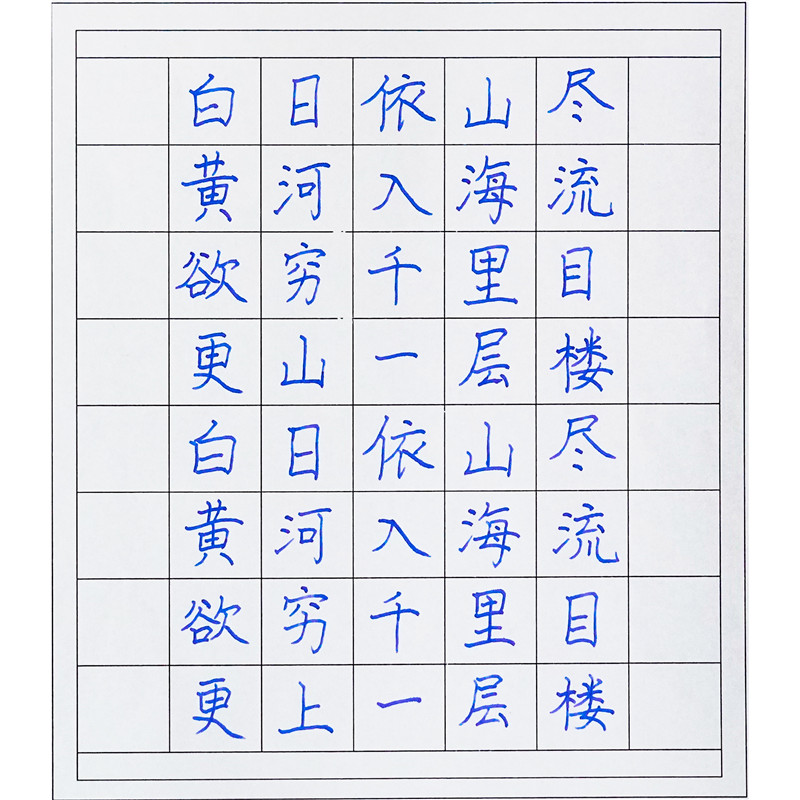 白日依山尽
黄河入海流
欲穷千里目
更山一层楼
白日依山尽
黄河入海流
欲穷千里目
更上一层楼